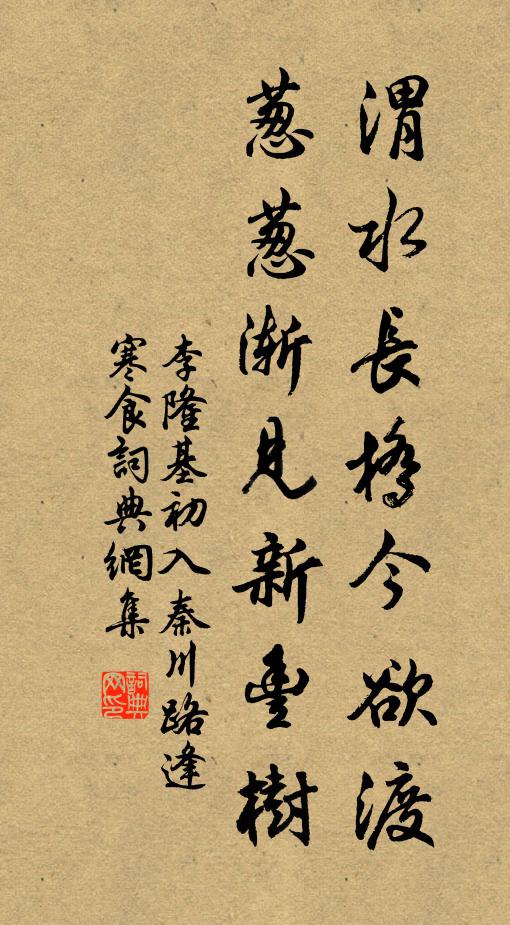 渭水長橋今欲渡
葱葱漸見新豐樹
李隆基初入秦川路逢
寒食詞典網集
詞典网印